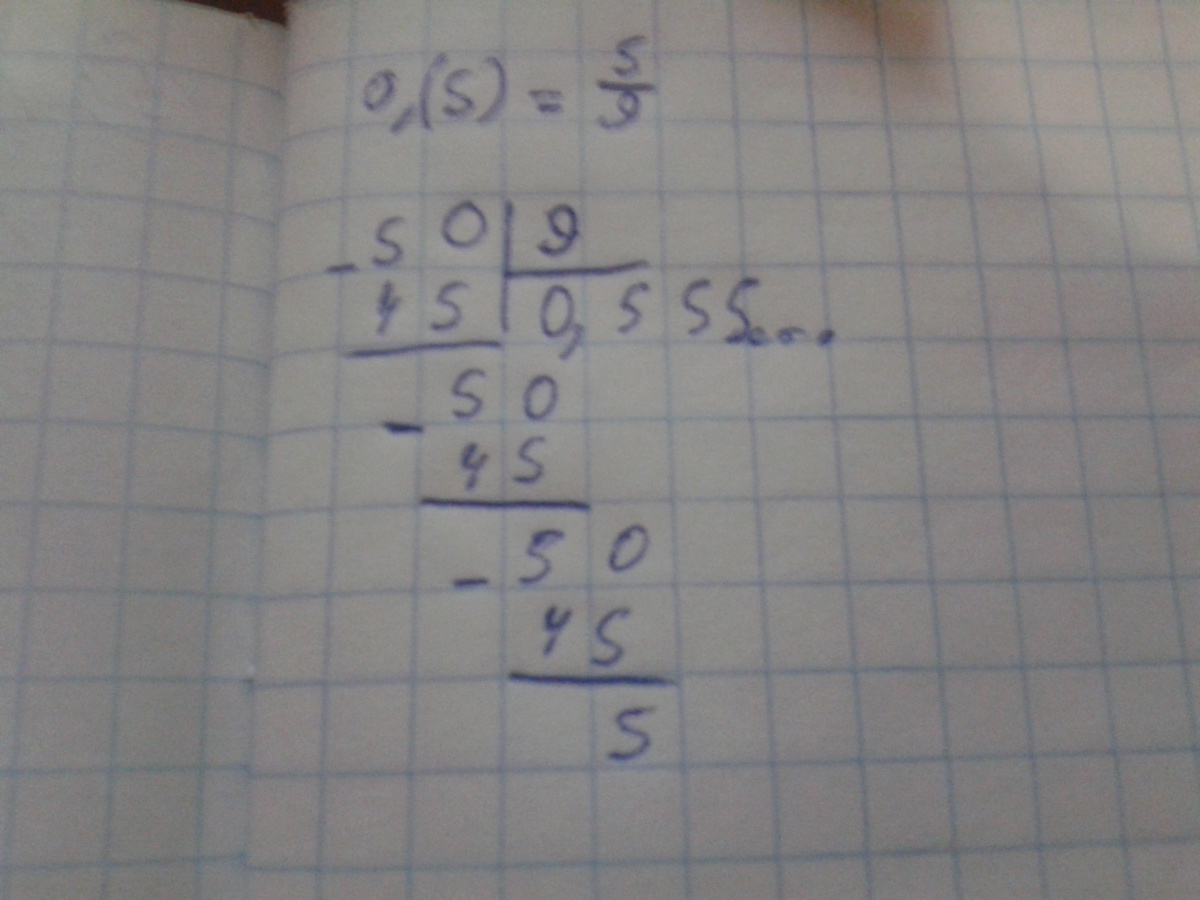 0,(5) = 5/9
- 50 | 9
45 | 0,555...
- 50
45
- 50
45
5